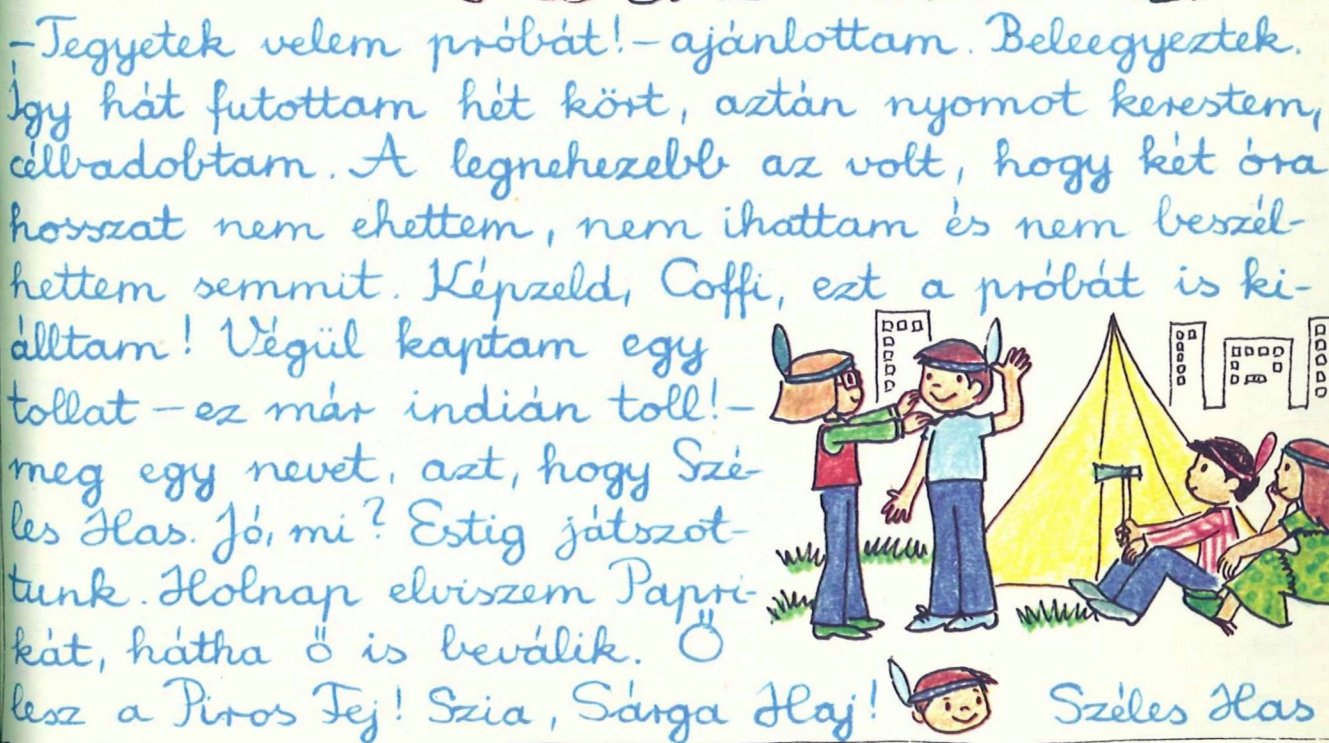 -Tegyetek velem próbát!- ajánlottam. Beleegyeztek.
Így hát futottam hét kört, aztán nyomot kerestem,
célbadobtam. A legnehezebb az volt, hogy két óra
hosszat nem ehettem, nem ihattam és nem beszél-
hettem semmit. Képzeld, Coffi, ezt a próbát is ki-
álltam! Végül kaptam egy
tollat – ez már indián toll! –
meg egy nevet, azt, hogy Szé-
les Has. Jó, mi? Estig játszot-
tunk. Holnap elviszem Papri-
kát, hátha ő is beválik. Ő
lesz a Piros Fej! Szia, Sárga Haj! Széles Has